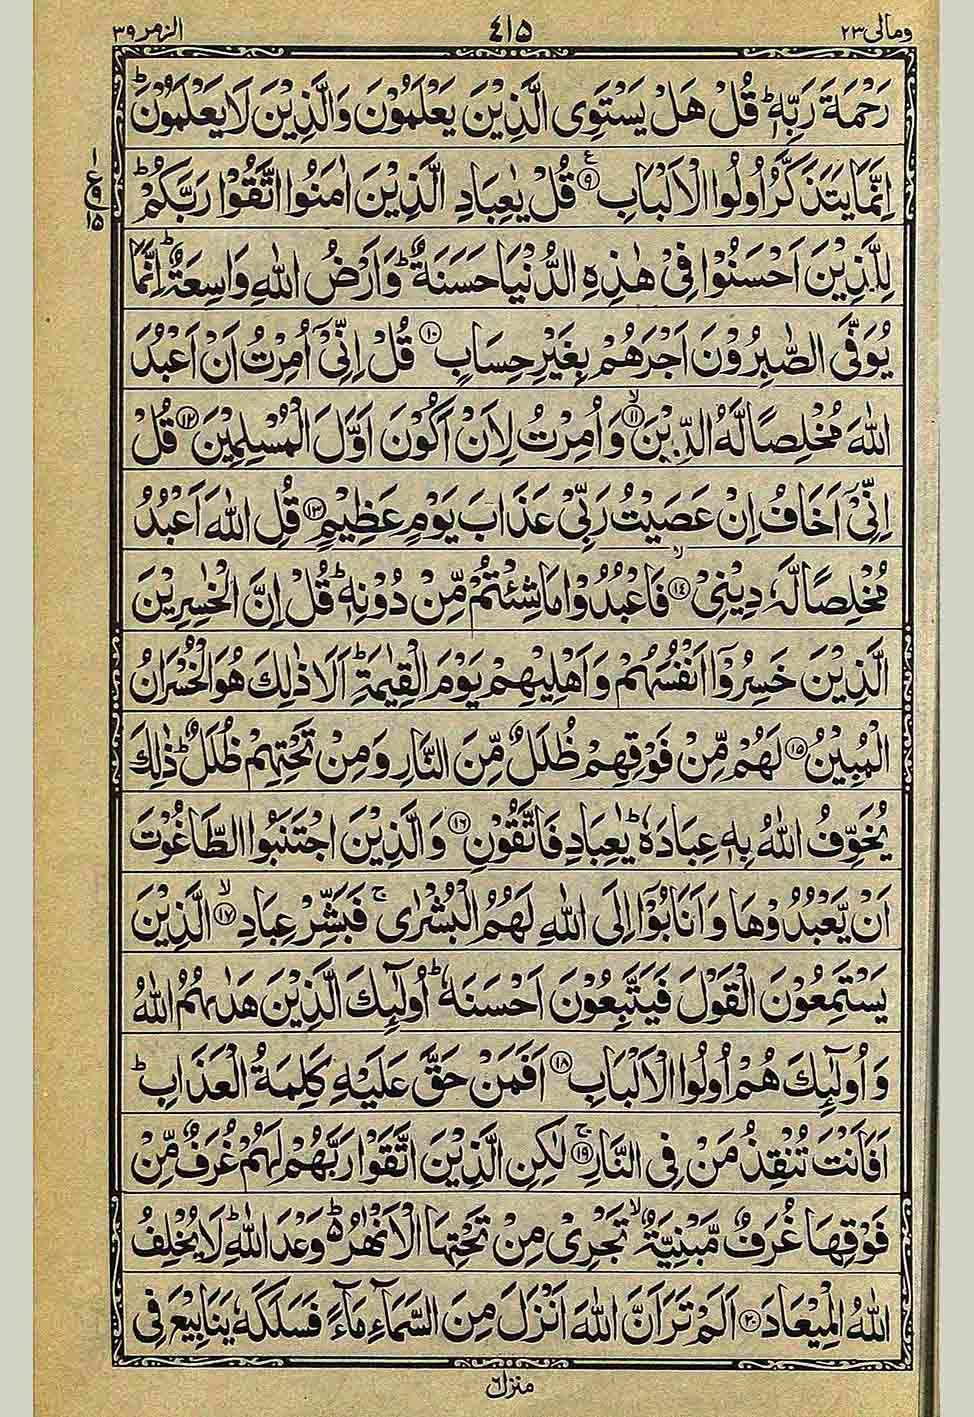 ومالی ۲۳
٤١٥
الزمر ۳۹
رَحْمَةَ رَبِّهٖ ؕ قُلْ هَلْ يَسْتَوِى الَّذِيْنَ يَعْلَمُوْنَ وَالَّذِيْنَ لَا يَعْلَمُوْنَ ؕ
اِنَّمَا يَتَذَكَّرُ اُولُوا الْاَلْبَابِ ﴿۹﴾ قُلْ يٰعِبَادِ الَّذِيْنَ اٰمَنُوا اتَّقُوْا رَبَّكُمْ ؕ
لِلَّذِيْنَ اَحْسَنُوْا فِىْ هٰذِهِ الدُّنْيَا حَسَنَةٌ ؕ وَاَرْضُ اللّٰهِ وَاسِعَةٌ ؕ اِنَّمَا
يُوَفَّى الصّٰبِرُوْنَ اَجْرَهُمْ بِغَيْرِ حِسَابٍ ﴿۱۰﴾ قُلْ اِنِّىْۤ اُمِرْتُ اَنْ اَعْبُدَ
اللّٰهَ مُخْلِصًا لَّهُ الدِّيْنَ ﴿۱۱﴾ۙ وَاُمِرْتُ لِاَنْ اَكُوْنَ اَوَّلَ الْمُسْلِمِيْنَ ﴿۱۲﴾ قُلْ
اِنِّىْۤ اَخَافُ اِنْ عَصَيْتُ رَبِّىْ عَذَابَ يَوْمٍ عَظِيْمٍ ﴿۱۳﴾ قُلِ اللّٰهَ اَعْبُدُ
مُخْلِصًا لَّهٗ دِيْنِىْ ﴿۱۴﴾ۙ فَاعْبُدُوْا مَا شِئْتُمْ مِّنْ دُوْنِهٖ ؕ قُلْ اِنَّ الْخٰسِرِيْنَ
الَّذِيْنَ خَسِرُوْۤا اَنْفُسَهُمْ وَاَهْلِيْهِمْ يَوْمَ الْقِيٰمَةِ ؕ اَلَا ذٰلِكَ هُوَ الْخُسْرَانُ
الْمُبِيْنُ ﴿۱۵﴾ لَهُمْ مِّنْ فَوْقِهِمْ ظُلَلٌ مِّنَ النَّارِ وَمِنْ تَحْتِهِمْ ظُلَلٌ ؕ ذٰلِكَ
يُخَوِّفُ اللّٰهُ بِهٖ عِبَادَهٗ ؕ يٰعِبَادِ فَاتَّقُوْنِ ﴿۱۶﴾ وَالَّذِيْنَ اجْتَنَبُوا الطَّاغُوْتَ
اَنْ يَّعْبُدُوْهَا وَاَنَابُوْۤا اِلَى اللّٰهِ لَهُمُ الْبُشْرٰى ۚ فَبَشِّرْ عِبَادِ ﴿۱۷﴾ۙ الَّذِيْنَ
يَسْتَمِعُوْنَ الْقَوْلَ فَيَتَّبِعُوْنَ اَحْسَنَهٗ ؕ اُولٰٓئِكَ الَّذِيْنَ هَدٰىهُمُ اللّٰهُ
وَاُولٰٓئِكَ هُمْ اُولُوا الْاَلْبَابِ ﴿۱۸﴾ اَفَمَنْ حَقَّ عَلَيْهِ كَلِمَةُ الْعَذَابِ ؕ
اَفَاَنْتَ تُنْقِذُ مَنْ فِى النَّارِ ﴿۱۹﴾ۚ لٰكِنِ الَّذِيْنَ اتَّقَوْا رَبَّهُمْ لَهُمْ غُرَفٌ مِّنْ
فَوْقِهَا غُرَفٌ مَّبْنِيَّةٌ ۙ تَجْرِىْ مِنْ تَحْتِهَا الْاَنْهٰرُ ؕ وَعْدَ اللّٰهِ ؕ لَا يُخْلِفُ
اللّٰهُ الْمِيْعَادَ ﴿۲۰﴾ اَلَمْ تَرَ اَنَّ اللّٰهَ اَنْزَلَ مِنَ السَّمَآءِ مَآءً فَسَلَكَهٗ يَنَابِيْعَ فِى
منزل ٦
۱
ع ۹
۱۵